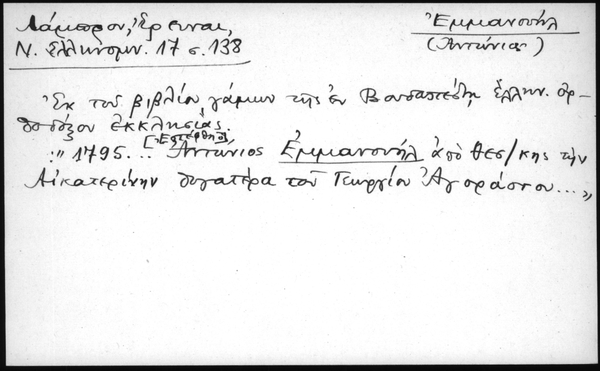 Λάμπρου, Ἔρευναι,
Ν. Ἑλληνομν. 17 σ. 138
Ἐμμανουήλ
(Ἀντώνιος)
Ἐκ τοῦ βιβλίου γάμων τῆς ἐν Βουδαπέστῃ ἑλλην. ὀρ-
θοδόξου ἐκκλησίας
:" 1795... Ἀντώνιος Ἐμμανουήλ ἀπὸ Θεσ/κης τὴν
Αἰκατερίνην θυγατέρα τοῦ Γεωργίου Ἀγοράστου..."